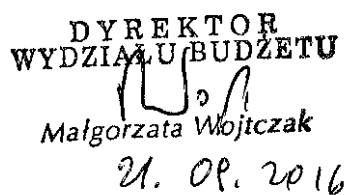 DYREKTOR
WYDZIAŁU BUDŻETU
Małgorzata Wojtczak
21. 09. 2016